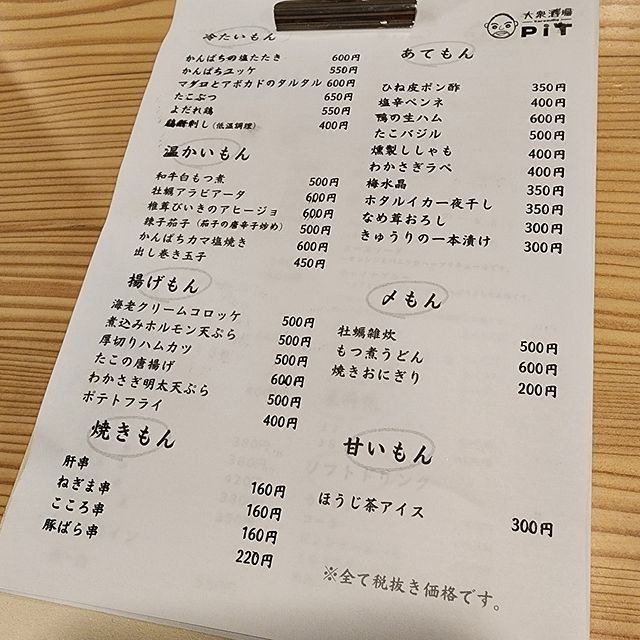 大衆酒場
PiT
冷たいもん
かんぱちの塩たたき 600円
かんぱちユッケ 550円
マグロとアボカドのタルタル 600円
たこぶつ 650円
よだれ鶏 550円
刺し(低温調理) 400円
温かいもん
和牛白もつ煮 500円
牡蠣アラビアータ 600円
椎茸びいきのアヒージョ 600円
辣子茄子(茄子の唐辛子炒め) 500円
かんぱちカマ塩焼き 600円
出し巻き玉子 450円
揚げもん
海老クリームコロッケ 500円
煮込みホルモン天ぷら 500円
厚切りハムカツ 500円
たこの唐揚げ 600円
わかさぎ明太天ぷら 500円
ポテトフライ 400円
焼きもん
肝串 160円
ねぎま串 160円
こころ串 160円
豚ばら串 220円
あてもん
ひね皮ポン酢 350円
塩辛ペンネ 400円
鴨の生ハム 600円
たこバジル 500円
燻製ししゃも 400円
わかさぎラペ 400円
梅水晶 350円
ホタルイカ一夜干し 350円
なめ茸おろし 300円
きゅうりの一本漬け 300円
〆もん
牡蠣雑炊 500円
もつ煮うどん 600円
焼きおにぎり 200円
甘いもん
ほうじ茶アイス 300円
※全て税抜き価格です。